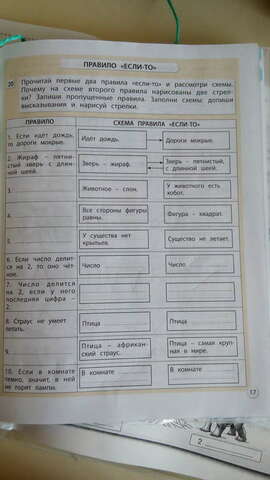 ПРАВИЛО «ЕСЛИ-ТО»
20. Прочитай первые два правила «если-то» и рассмотри схемы.
Почему на схеме второго правила нарисованы две стрел-
ки? Запиши пропущенные правила. Заполни схемы: допиши
высказывания и нарисуй стрелки.
ПРАВИЛО СХЕМА ПРАВИЛА «ЕСЛИ-ТО»
1. Если идёт дождь, то дороги мокрые. Идёт дождь. Дороги мокрые.
2. Жираф – пятни-
стый зверь с длин-
ной шеей. Зверь – жираф. Зверь – пятнистый,
с длинной шеей.
3. Животное – слон. У животного есть
хобот.
4. Все стороны фигуры
равны. Фигура – квадрат.
5. У существа нет
крыльев. Существо не летает.
6. Если число делит-
ся на 2, то оно чёт-
ное. Число Число
7. Число делится
на 2, если у него
последняя цифра –
2.
8. Страус не умеет
летать. Птица Птица
9. Птица – африкан-
ский страус. Птица – самая круп-
ная в мире.
10. Если в комнате
темно, значит, в ней
не горят лампы. В комнате В комнате
17
2